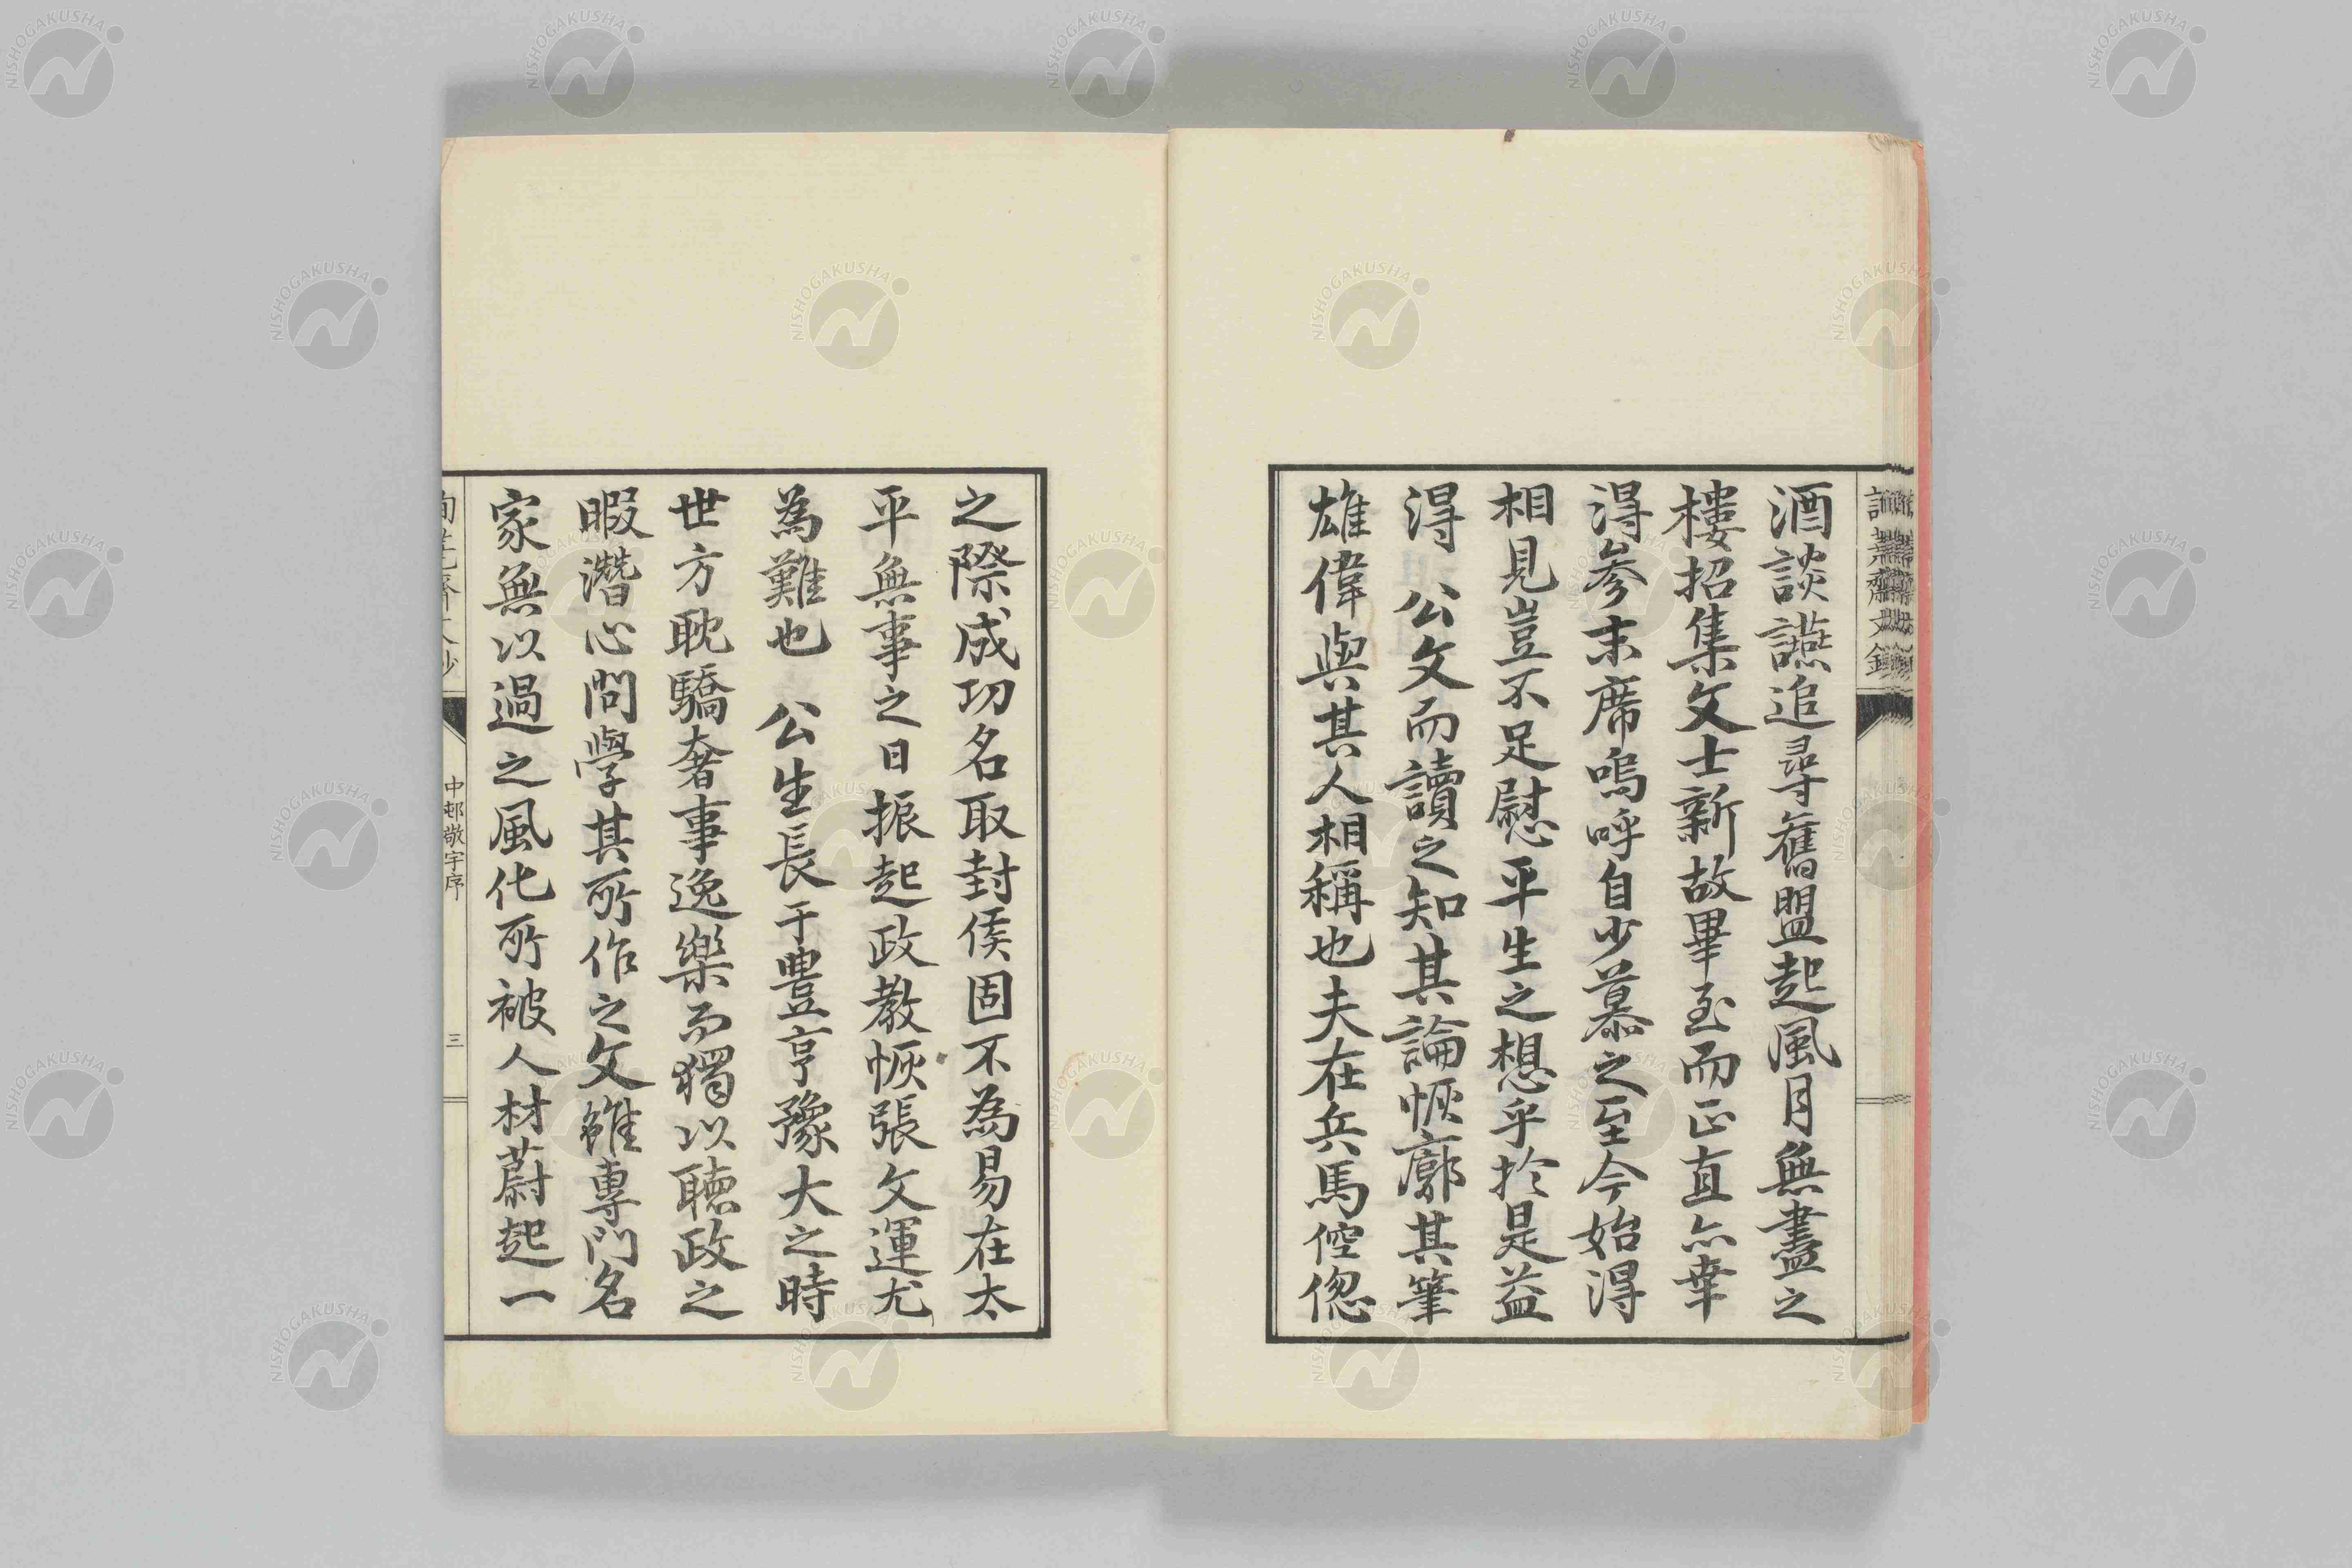 酒談讌追尋舊盟起風月無盡之
樓招集文士新故畢至而正直亦幸
得參末席嗚呼自少慕之至今始得
相見豈不足慰平生之想乎於是益
得 公文而讀之知其論恢廓其筆
雄偉與其人相稱也夫在兵馬倥偬
之際成功名取封侯固不為易在太
平無事之日振起政教恢張文運尤
為難也 公生長于豐亨豫大之時
世方耽驕奢事逸樂而獨以聽政之
暇潛心問學其所作之文雖專門名
家無以過之風化所被人材蔚起一
中邨敬宇序
三
NISHOGAKUSHA